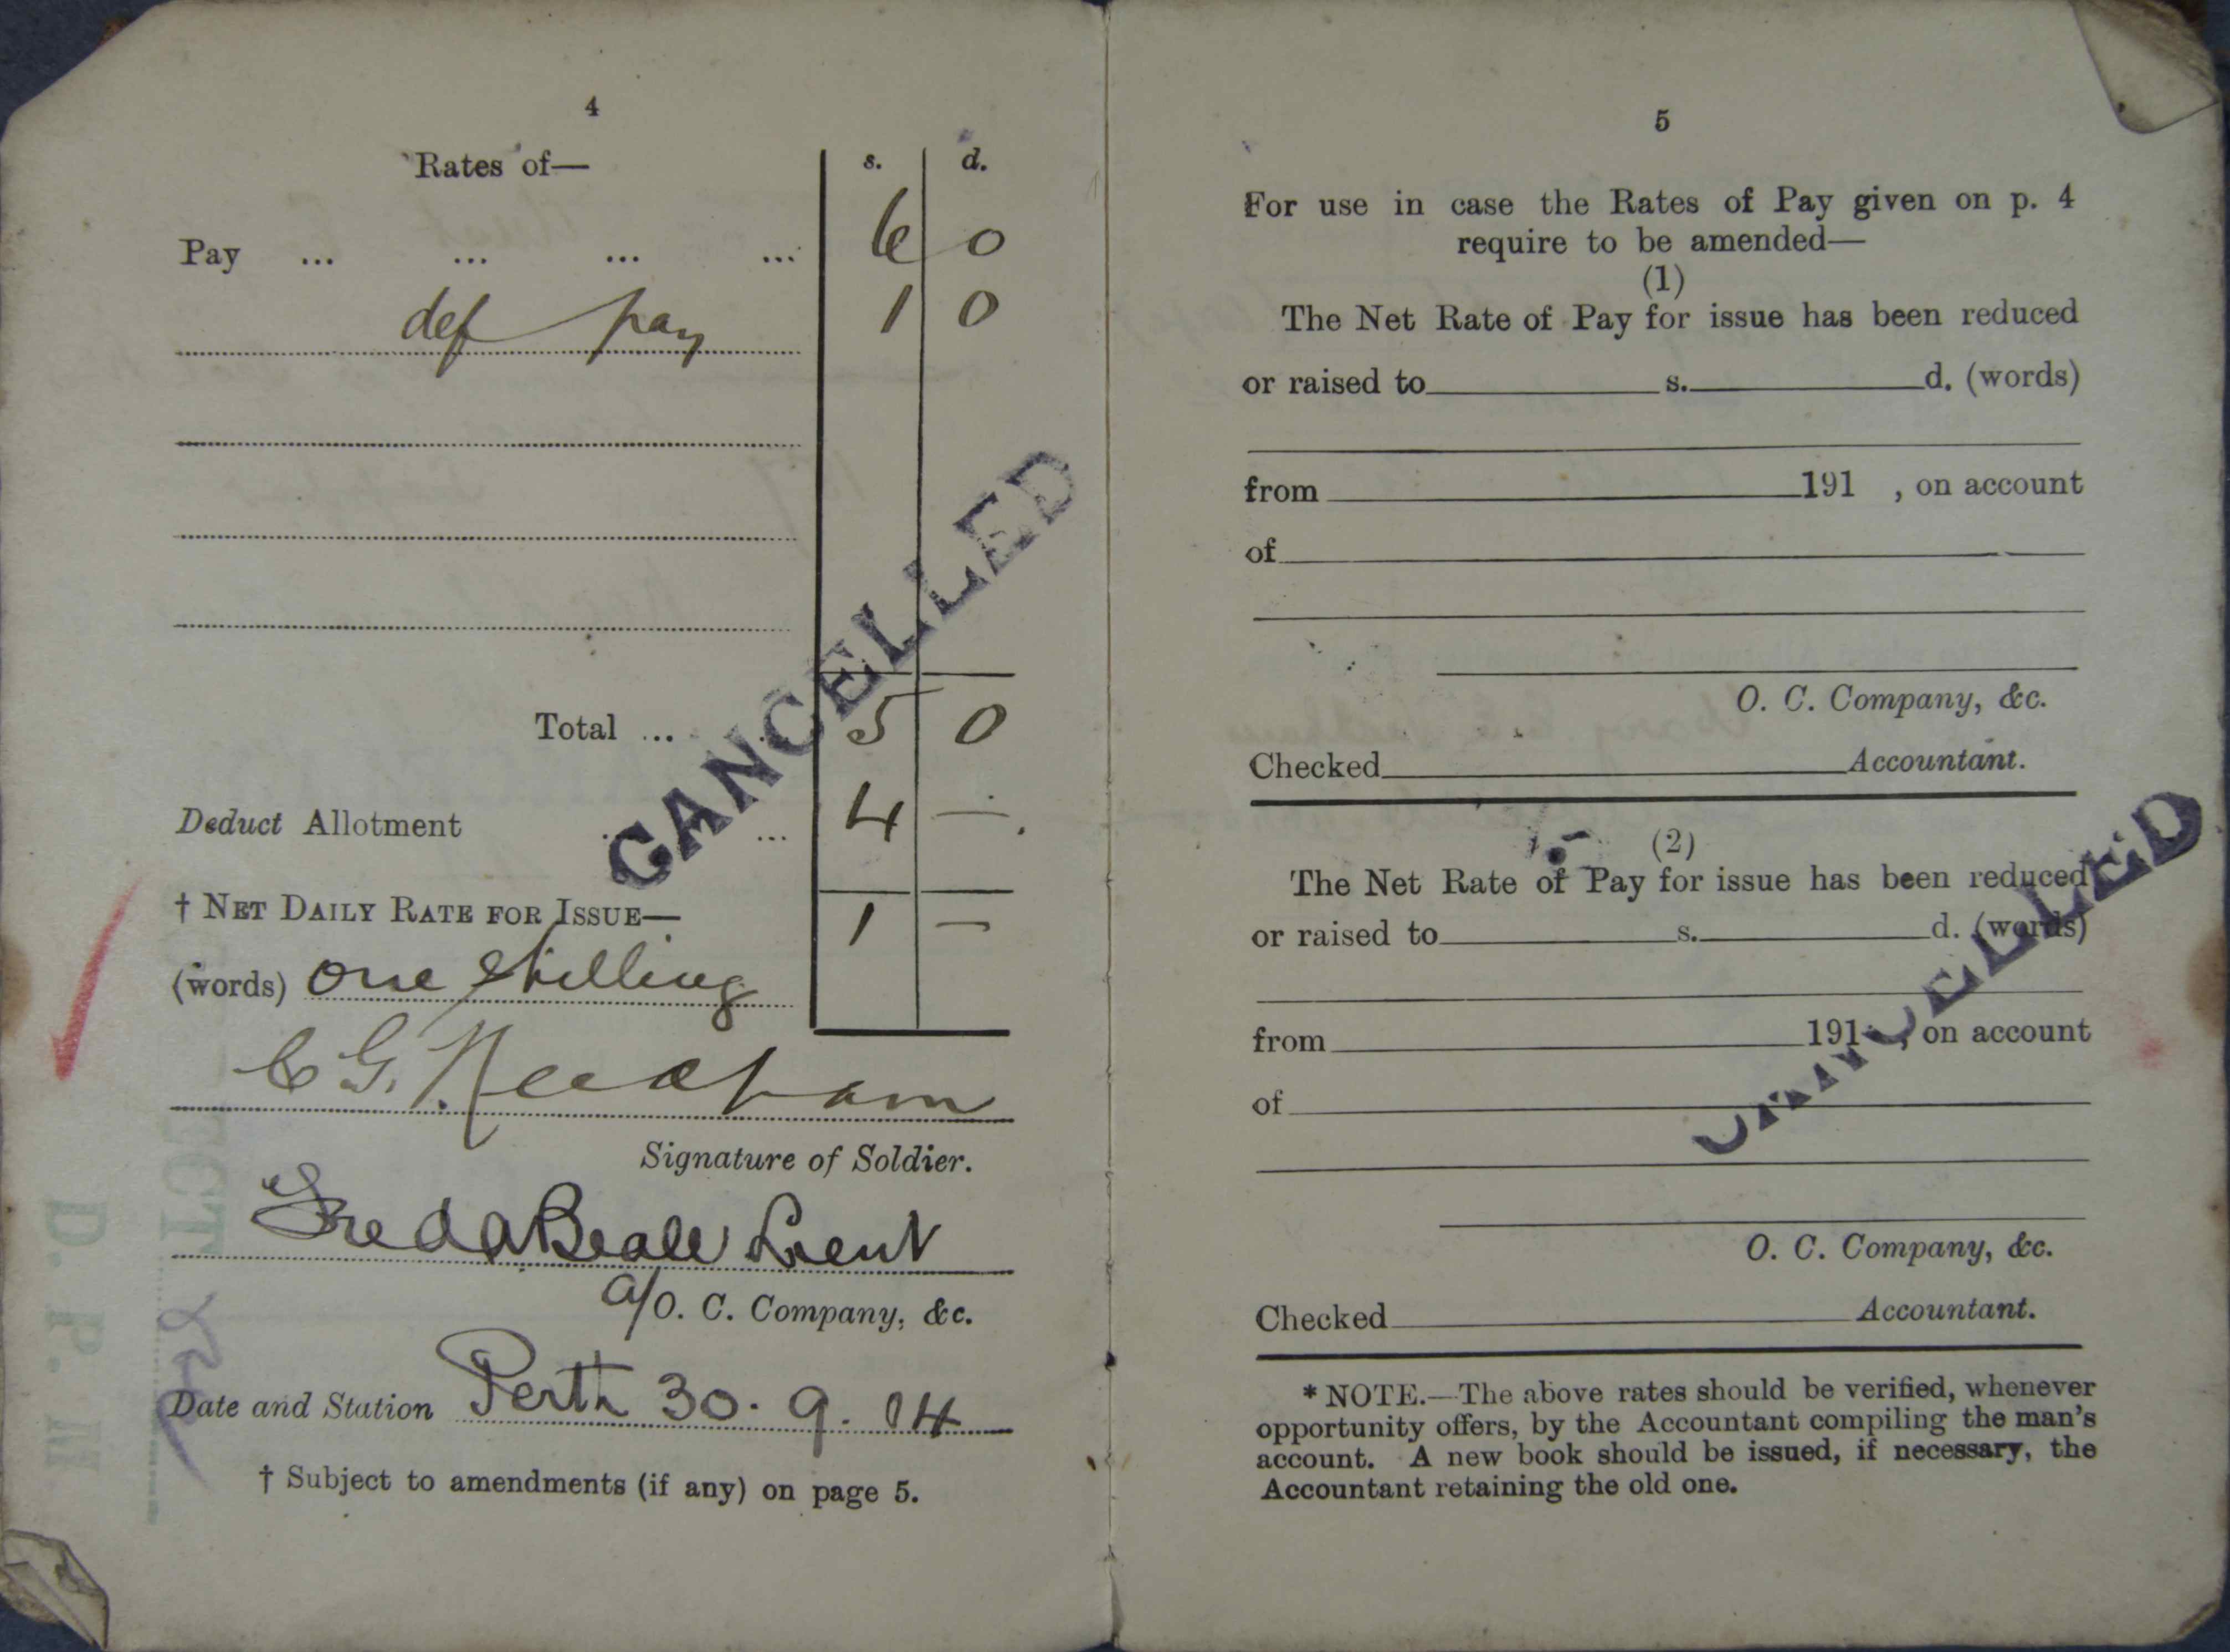 4
Rates of—
s. d.
Pay ... ... ... ... 6 0
def pay 1 0
Total ... 5 0
Deduct Allotment ... 4 —
† NET DAILY RATE FOR ISSUE— 1 —
(words) one shilling
C G. Needham
Signature of Soldier.
Fred A Beale Lieut
a/O. C. Company, &c.
Date and Station Perth 30. 9. 14
† Subject to amendments (if any) on page 5.
CANCELLED
D. P. M
5
For use in case the Rates of Pay given on p. 4
require to be amended—
(1)
The Net Rate of Pay for issue has been reduced
or raised to s. d. (words)
from 191 , on account
of
O. C. Company, &c.
Checked Accountant.
(2)
The Net Rate of Pay for issue has been reduced
or raised to s. d. (words)
from 191 , on account
of
O. C. Company, &c.
Checked Accountant.
* NOTE.—The above rates should be verified, whenever
opportunity offers, by the Accountant compiling the man's
account. A new book should be issued, if necessary, the
Accountant retaining the old one.
CANCELLED